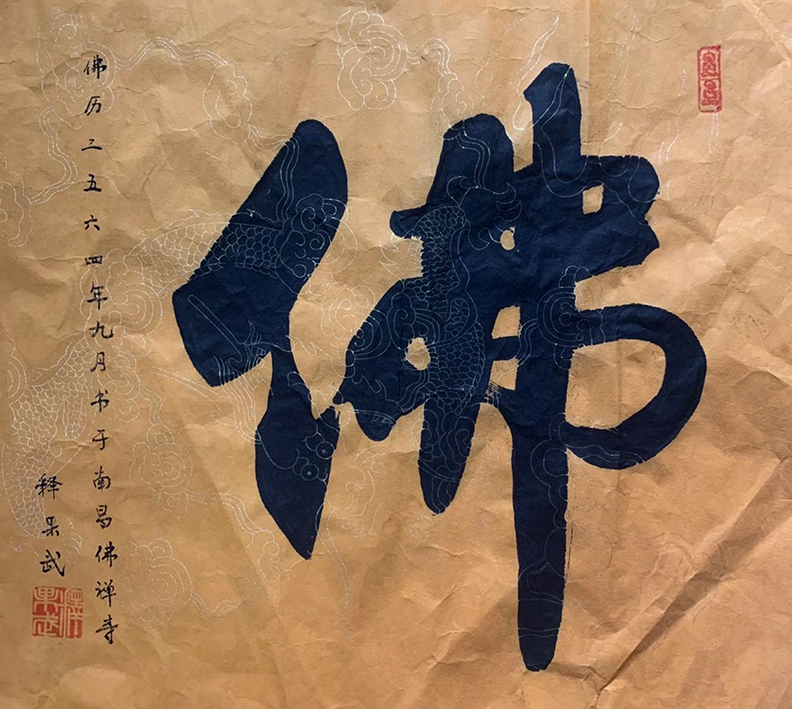 佛
佛历二五六四年九月书于南昌佛禅寺
释果武